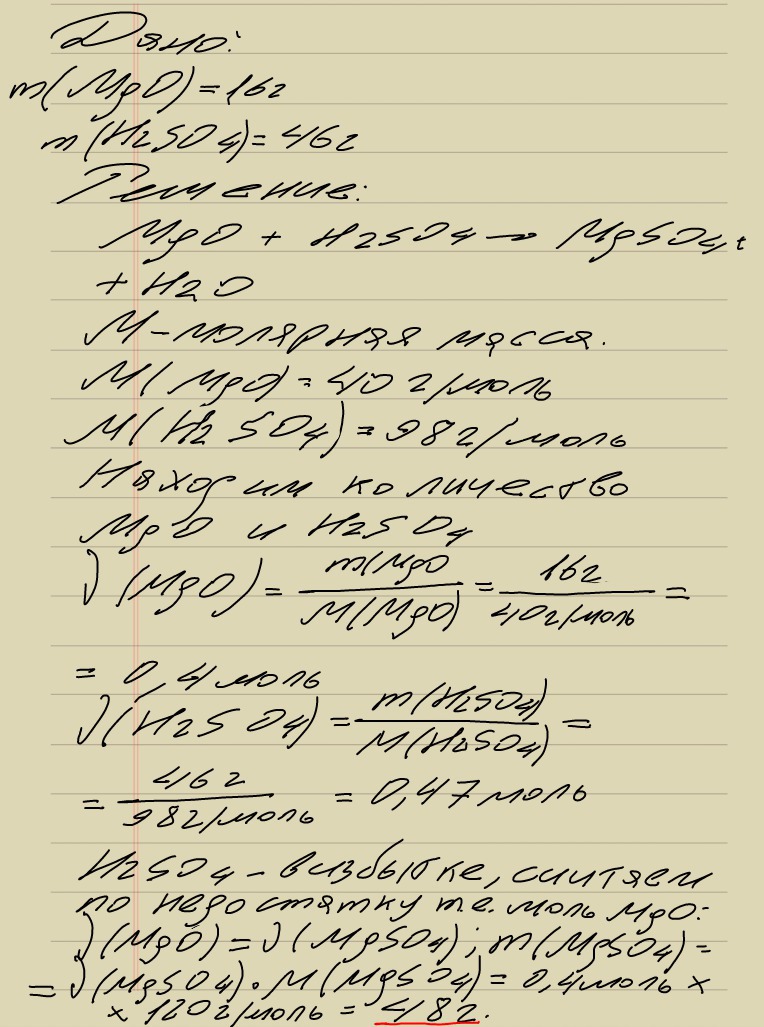 Дано:
m(MgO)=16г
m(H2SO4)=46г
Решение:
MgO + H2SO4 → MgSO4 +
+ H2O
М-молярная масса.
М(MgO)=40 г/моль
М(H2SO4)=98г/моль
Находим количество
MgO и H2SO4
ν(MgO) = m(MgO / M(MgO) = 16г / 40г/моль =
= 0,4 моль
ν(H2SO4) = m(H2SO4) / M(H2SO4) =
= 46г / 98г/моль = 0,47 моль
H2SO4 - в избытке, считаем
по недостатку т.е. моль MgO:
ν(MgO) = ν(MgSO4); m(MgSO4) =
= ν(MgSO4)·M(MgSO4) = 0,4 моль ×
× 120г/моль = 48г.